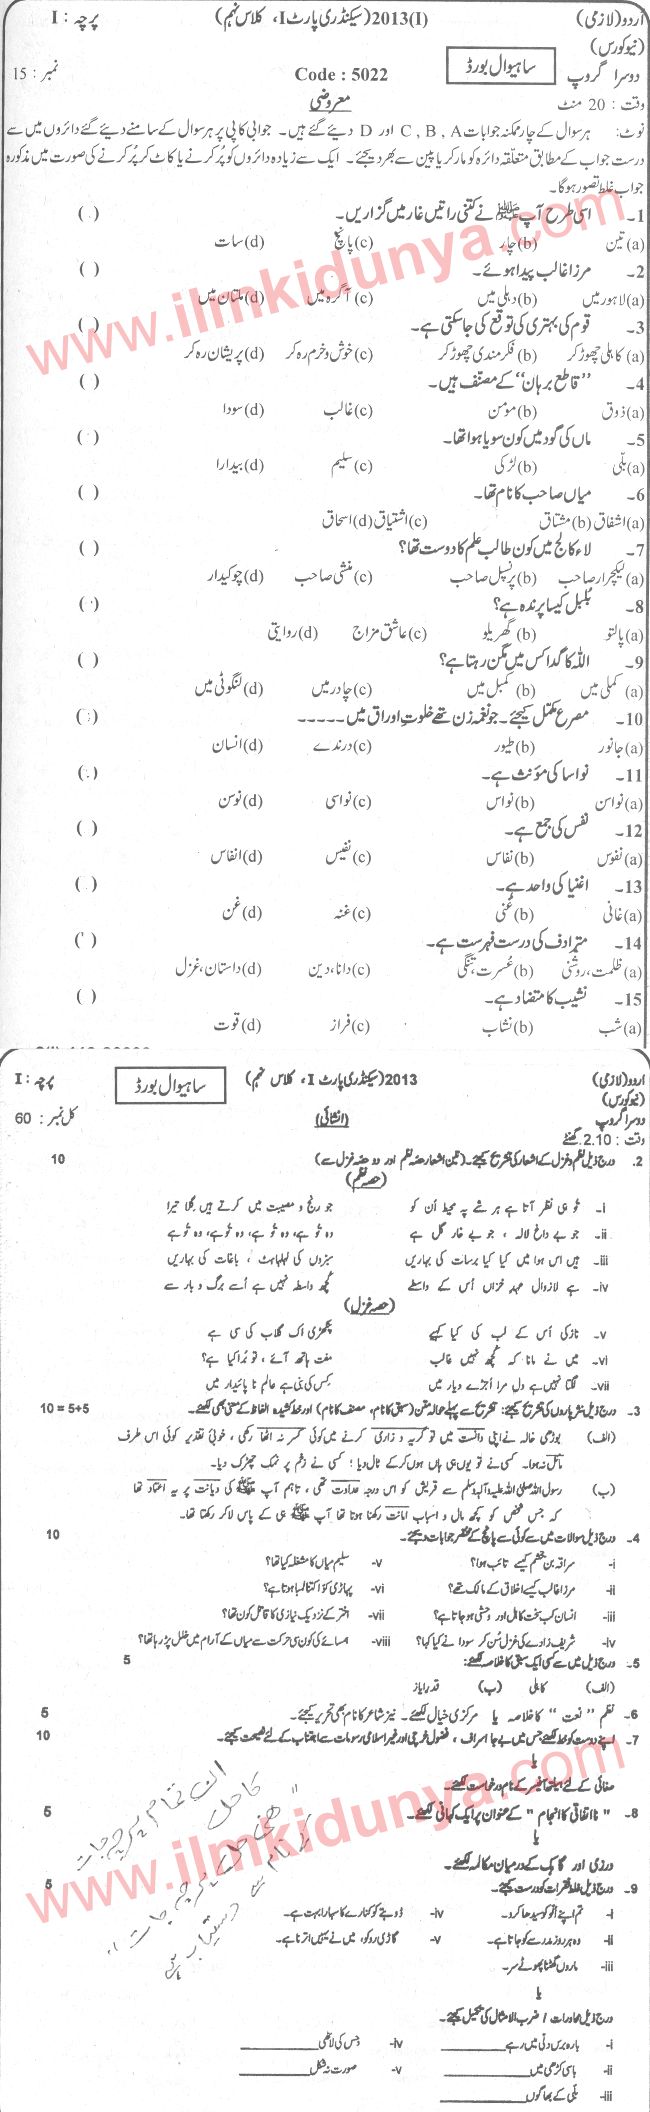 اردو (لازمی) 2013(I) (سیکنڈری پارٹ I، کلاس نہم) پرچہ : I
(نیو کورس)
دوسرا گروپ ساہیوال بورڈ Code : 5022 نمبر : 15
وقت : 20 منٹ معروضی
نوٹ: ہر سوال کے چار ممکنہ جوابات C , B , A اور D دیئے گئے ہیں۔ جوابی کاپی پر ہر سوال کے سامنے دیئے گئے دائروں میں سے
درست جواب کے مطابق متعلقہ دائرہ کو مارکر یا پین سے بھر دیجئے۔ ایک سے زیادہ دائروں کو پُر کرنے یا کاٹ کر پُر کرنے کی صورت میں مذکورہ
جواب غلط تصور ہوگا۔
1۔ اسی طرح آپ ﷺ نے کتنی راتیں غار میں گزاریں۔ ( )
(a) تین (b) چار (c) پانچ (d) سات
2۔ مرزا غالب پیدا ہوئے۔ ( )
(a) لاہور میں (b) دہلی میں (c) آگرہ میں (d) ملتان میں
3۔ قوم کی بہتری کی توقع کی جاسکتی ہے۔ ( )
(a) کاہلی چھوڑ کر (b) فکرمندی چھوڑ کر (c) خوش و خرم رہ کر (d) پریشان رہ کر
4۔ ’’قاطع برہان‘‘ کے مصنف ہیں۔ ( )
(a) ذوق (b) مومن (c) غالب (d) سودا
5۔ ماں کی گود میں کون سویا ہوا تھا۔ ( )
(a) بلّی (b) لڑکی (c) سلیم (d) بیدارا
6۔ میاں صاحب کا نام تھا۔ ( )
(a) اشفاق (b) مشتاق (c) اشتیاق (d) اسحاق
7۔ لاء کالج میں کون طالب علم کا دوست تھا؟ ( )
(a) لیکچرار صاحب (b) پرنسپل صاحب (c) منشی صاحب (d) چوکیدار
8۔ بُلبل کیسا پرندہ ہے؟ ( )
(a) پالتو (b) گھریلو (c) عاشق مزاج (d) روایتی
9۔ اللہ کا گدا کس میں مگن رہتا ہے؟ ( )
(a) کملی میں (b) کمبل میں (c) چادر میں (d) لنگوٹی میں
10۔ مصرع مکمل کیجئے۔ جو نغمہ زن تھے خلوتِ اوراق میں ۔۔۔۔۔ ( )
(a) جانور (b) طیور (c) درندے (d) انسان
11۔ نواسا کی مؤنث ہے۔ ( )
(a) نواسن (b) نواس (c) نواسی (d) نوسن
12۔ نفس کی جمع ہے۔ ( )
(a) نفوس (b) نفاس (c) نفیس (d) انفاس
13۔ اغنیا کی واحد ہے۔ ( )
(a) غانی (b) غنی (c) غنہ (d) غن
14۔ مترادف کی درست فہرست ہے۔ ( )
(a) ظلمت، روشنی (b) عُسرت، تنگی (c) دانا، دین (d) داستان، غزل
15۔ نشیب کا متضاد ہے۔ ( )
(a) شب (b) نشاب (c) فراز (d) قوت
اردو (لازمی) 2013 (سیکنڈری پارٹ I، کلاس نہم) ساہیوال بورڈ پرچہ : I
(نیو کورس)
دوسرا گروپ (انشائی) کل نمبر : 60
وقت : 2.10 گھنٹے
2۔ درج ذیل نظم و غزل کے اشعار کی تشریح کیجئے۔ (تین اشعار حصہ نظم اور دو حصہ غزل سے) 10
(حصہ نظم)
i۔ تُو ہی نظر آتا ہے ہر شے پہ محیط اُن کو جو رنج و مصیبت میں کرتے ہیں گِلا تیرا
ii۔ جو بے داغ لالہ ، جو بے خار گل ہے وہ تُو ہے، وہ تُو ہے، وہ تُو ہے، وہ تُو ہے
iii۔ ہیں اس ہوا میں کیا کیا برسات کی بہاریں سبزوں کی لہلہاہٹ ، باغات کی بہاریں
iv۔ ہے لازوال عہدِ خزاں اُس کے واسطے کچھ واسطہ نہیں ہے اُسے برگ و بار سے
(حصہ غزل)
v۔ نازکی اُس کے لب کی کیا کہیے پنکھڑی اک گلاب کی سی ہے
vi۔ میں نے مانا کہ کچھ نہیں غالب مفت ہاتھ آئے ، تو بُرا کیا ہے؟
vii۔ لگتا نہیں ہے دل مرا اُجڑے دیار میں کِس کی بنی ہے عالمِ نا پائیدار میں
3۔ درج ذیل نثر پاروں کی تشریح کیجئے: تشریح سے پہلے حوالہ متن (سبق کا نام، مصنف کا نام) اور خط کشیدہ الفاظ کے معنی بھی لکھئے۔ 10 = 5+5
(الف) بوڑھی خالہ نے اپنی دانست میں تو گریہ و زاری کرنے میں کوئی کسر نہ اٹھا رکھی ، خوبیٔ تقدیر کوئی اس طرف
مائل نہ ہوا۔ کسی نے تو یوں ہی ہاں ہوں کر کے ٹال دیا ؛ کسی نے زخم پر نمک چھڑک دیا۔
(ب) رسول اللہ صلی اللہ علیہ وآلہ وسلم سے قریش کو اس درجہ عداوت تھی ، تاہم آپ ﷺ کی دیانت پر یہ اعتماد تھا
کہ جس شخص کو کچھ مال و اسباب امانت رکھنا ہوتا تھا آپ ﷺ ہی کے پاس لا کر رکھتا تھا۔
4۔ درج ذیل سوالات میں سے کوئی سے پانچ کے مختصر جوابات دیجئے۔ 10
i۔ سراقہ بن جعشم کیسے تائب ہوا؟ v۔ سلیم میاں کا مشغلہ کیا تھا؟
ii۔ مرزا غالب کیسے اخلاق کے مالک تھے؟ vi۔ پہاڑی کوا کتنا لمبا ہوتا ہے؟
iii۔ انسان کب سخت کاہل اور وحشی ہوجاتا ہے؟ vii۔ اختر کے نزدیک نیازی کا قاتل کون تھا؟
iv۔ شریف زادے کی غزل سُن کر سودا نے کیا کہا؟ viii۔ ہمسائے کی کون سی حرکت سے میاں کے آرام میں خلل پڑ رہا تھا؟
5۔ درج ذیل میں سے کسی ایک سبق کا خلاصہ لکھئے: 5
(الف) کاہلی (ب) قدرِ ایاز
6۔ نظم " نعت " کا خلاصہ یا مرکزی خیال لکھئے۔ نیز شاعر کا نام بھی تحریر کیجئے۔ 5
7۔ اپنے دوست کو خط لکھئے جس میں بے جا اسراف ، فضول خرچی اور غیر اسلامی رسومات سے اجتناب کے لئے نصیحت کیجئے۔ 10
یا
صفائی کے لئے ہیلتھ آفیسر کے نام درخواست لکھئے۔
8۔ " نااتفاقی کا انجام " کے عنوان پر ایک کہانی لکھئے۔ 5
یا
درزی اور گاہک کے درمیان مکالمہ لکھئے۔
9۔ درج ذیل غلط فقرات کو درست کیجئے۔ 5
i۔ تم اپنے اُلّو کو سیدھا کرو۔ iv۔ ڈوبتے کو کنارے کا سہارا بہت ہے۔
ii۔ وہ ہر روز مدرسے کو جاتا ہے۔ v۔ گاڑی روکو، میں نے یہیں اترنا ہے۔
iii۔ ماروں گھٹنا پھوٹے سر۔
یا
درج ذیل محاورات / ضرب الامثال کی تکمیل کیجئے۔
i۔ بارہ برس دلّی میں رہے ________ iv۔ جس کی لاٹھی ________
ii۔ باسی کڑھی میں ________ v۔ صورت نہ شکل ________
iii۔ بلّی کے بھاگوں ________
www.ilmkidunya.com
www.ilmkidunya.com